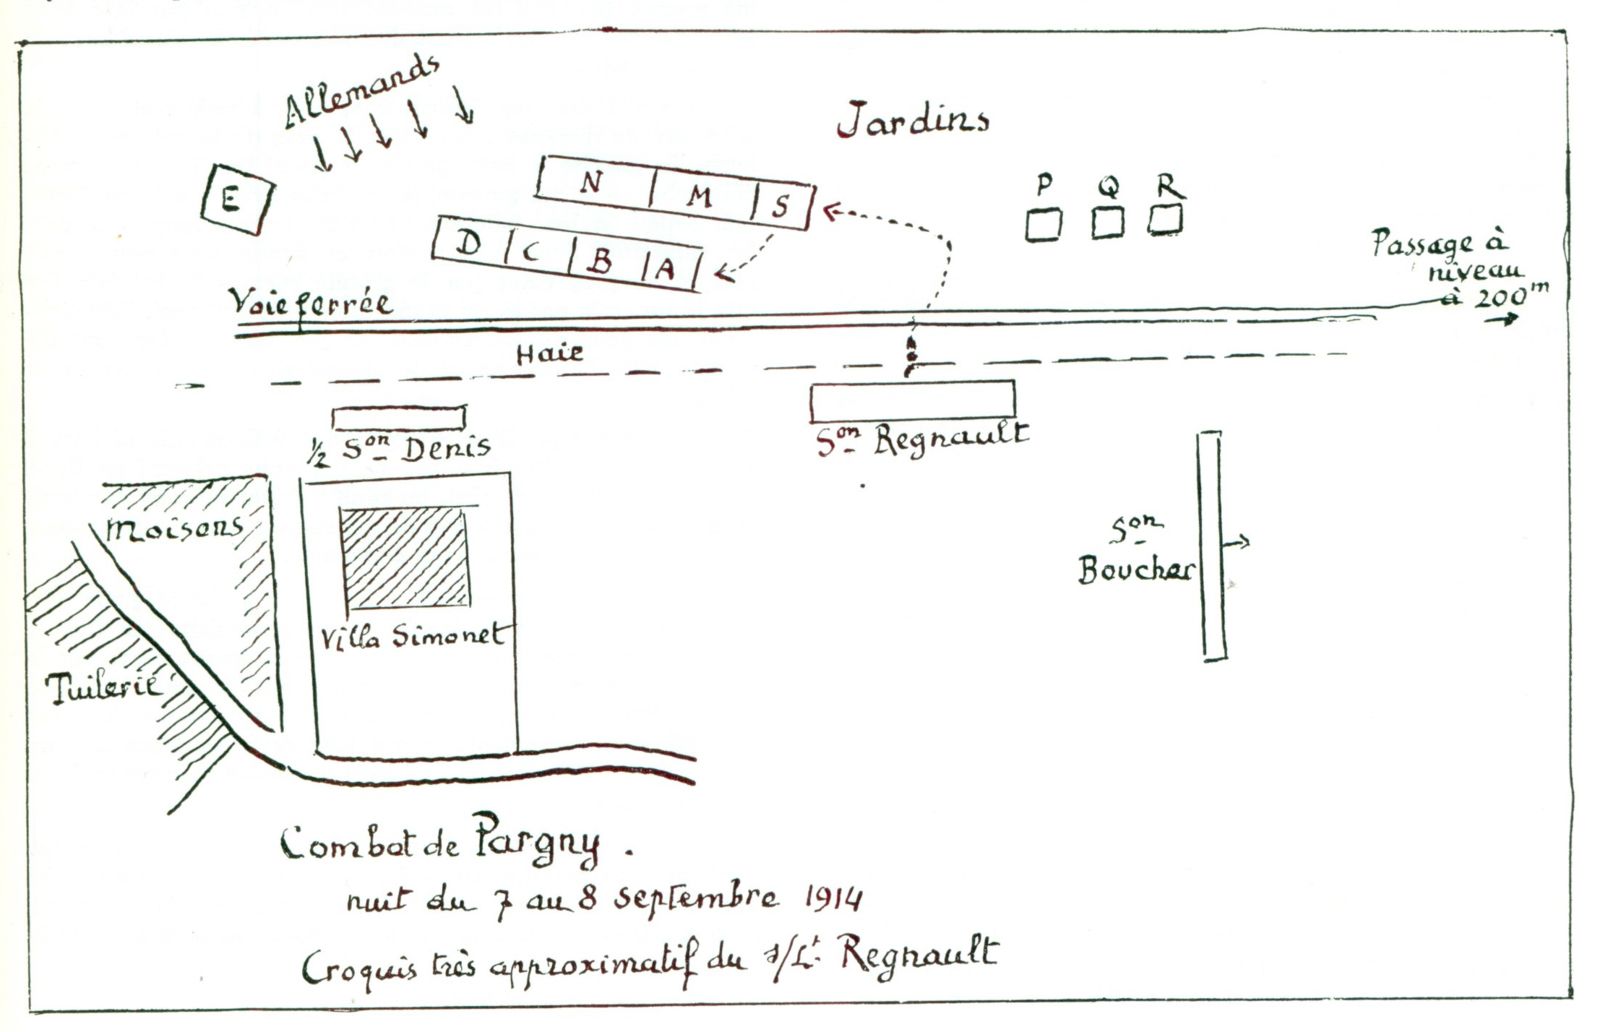 Allemands
Jardins
E
N M S
P Q R
D C B A
Passage à
niveau
à 200m
Voie ferrée
Haie
½ Son Denis
Son Regnault
Maisons
Son
Boucher
Villa Simonet
Tuilerie
Combat de Pargny.
nuit du 7 au 8 septembre 1914
Croquis très approximatif du s/Lt. Regnault